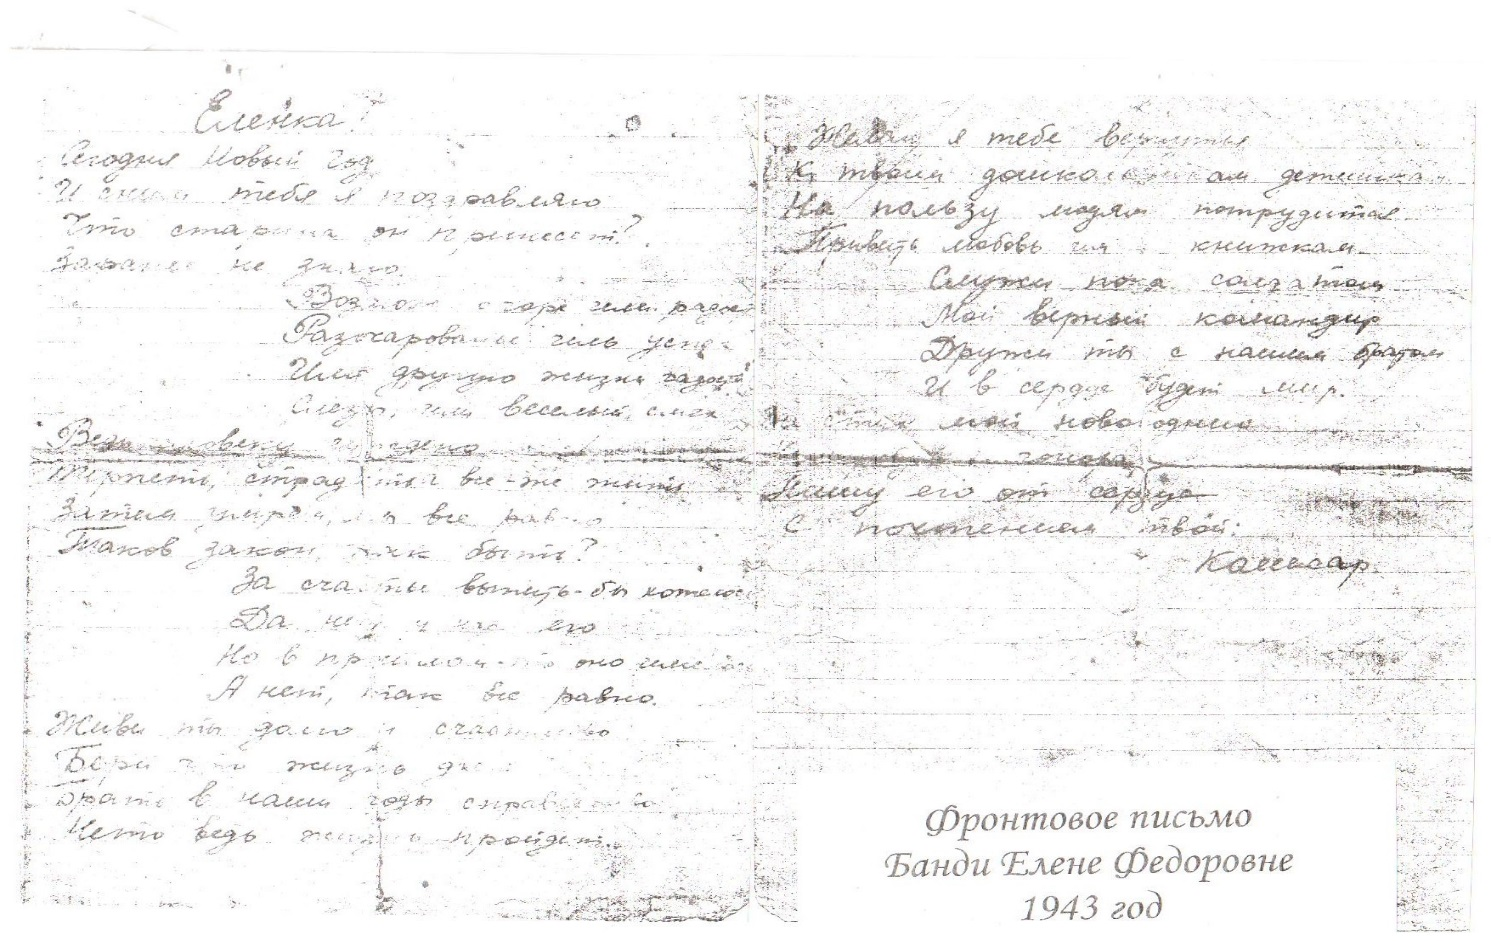 Еленка!
Сегодня Новый год
И с ним тебя я поздравляю
Что старина он принесет?
Заранее не знаю.
Возможно горе или радос
Разочарованье иль успех
Или другую жизни
Слезы, или веселый смех
Ведь человеку суждено
Терпеть, страдать и все-же жить
Затем умрем, все равно
Таков закон, как быть?
За счастье выпить-бы хотелос
Да нету у нас его
Но в прошлом оно
А нет, так все равно.
Живи ты долго и счастливо
Бери жизнь
Брать в наши годы справедливо
Нето ведь жизнь пройдет.
Желаю я тебе вернуться
К твоим дошкольникам детишкам
На пользу людям потрудиться
Привить любовь к книжкам.
Служи пока солдатом
Мой верный командир
Дружи ты с нашим братом
И в сердце будет мир.
стих мой новогодний
Пишу его от сердца
С почтением твой:
Фронтовое письмо
Банди Елене Федоровне
1943 год